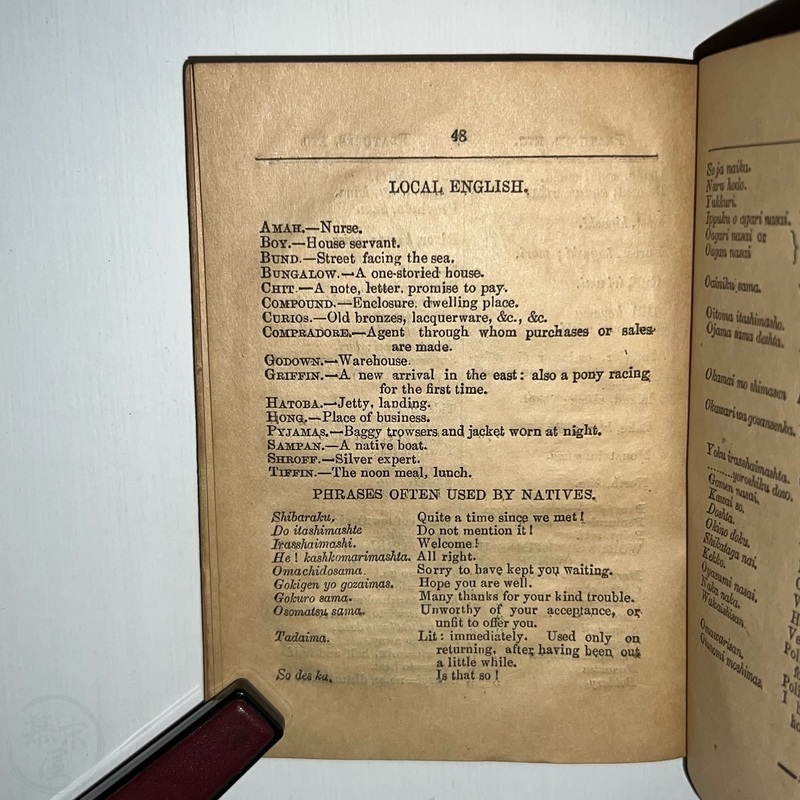 48
LOCAL ENGLISH.
AMAH.—Nurse.
BOY.—House servant.
BUND.—Street facing the sea.
BUNGALOW.—A one-storied house.
CHIT.—A note, letter, promise to pay.
COMPOUND.—Enclosure, dwelling place.
CURIOS.—Old bronzes, lacquerware, &c., &c.
COMPRADORE.—Agent through whom purchases or sales
are made.
GODOWN.—Warehouse.
GRIFFIN.—A new arrival in the east: also a pony racing
for the first time.
HATOBA.—Jetty, landing.
HONG.—Place of business.
PYJAMAS.—Baggy trowsers and jacket worn at night.
SAMPAN.—A native boat.
SHROFF.—Silver expert.
TIFFIN.—The noon meal, lunch.
PHRASES OFTEN USED BY NATIVES.
Shibaraku, Quite a time since we met!
Do itashimashte Do not mention it!
Irasshaimashi. Welcome!
He! kashkomarimashta. All right.
Omachidosama. Sorry to have kept you waiting.
Gokigen yo gozaimas. Hope you are well.
Gokuro sama. Many thanks for your kind trouble.
Osomatsu sama. Unworthy of your acceptance, or
unfit to offer you.
Tadaima. Lit: immediately. Used only on
returning, after having been out
a little while.
So des ka. Is that so!
So ja naiku.
Naru hodo.
Yukkuri.
Ippuku o agari nasai.
Oagari nasai or
Oagan nasai
Oainiku sama.
Oitoma itashimasho.
Ojama sama deshta.
Okamai mo shimasen
Okawari wa gozansenka.
Yoku irasshaimashta.
yoroshiku dozo.
Gomen nasai.
Kawai so.
Doshta.
Okino doku.
Shikataga nai.
Kekko.
Oyasumi nasai.
Naka naka.